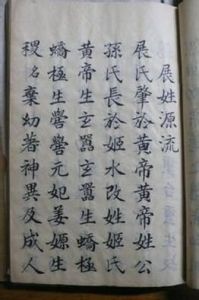 展姓源流
展氏肇於黃帝黃帝姓公
孫氏長於姬水改姓姬氏
黃帝生玄囂玄囂生蟜極
蟜極生嚳嚳元妃姜嫄生
稷名棄幼著神異及成人